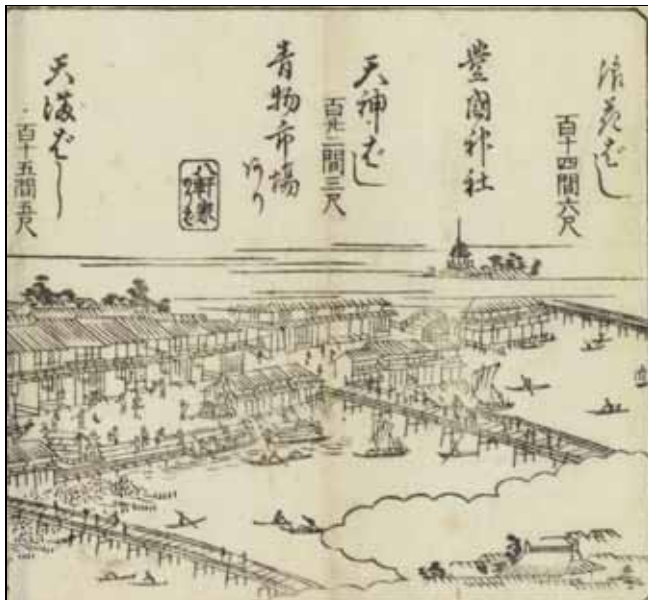 浪花ばし
百十四間六尺
豐國神社
天神ばし
百廿二間三尺
青物市場
あり
八軒家
天満ばし
百十五間五尺